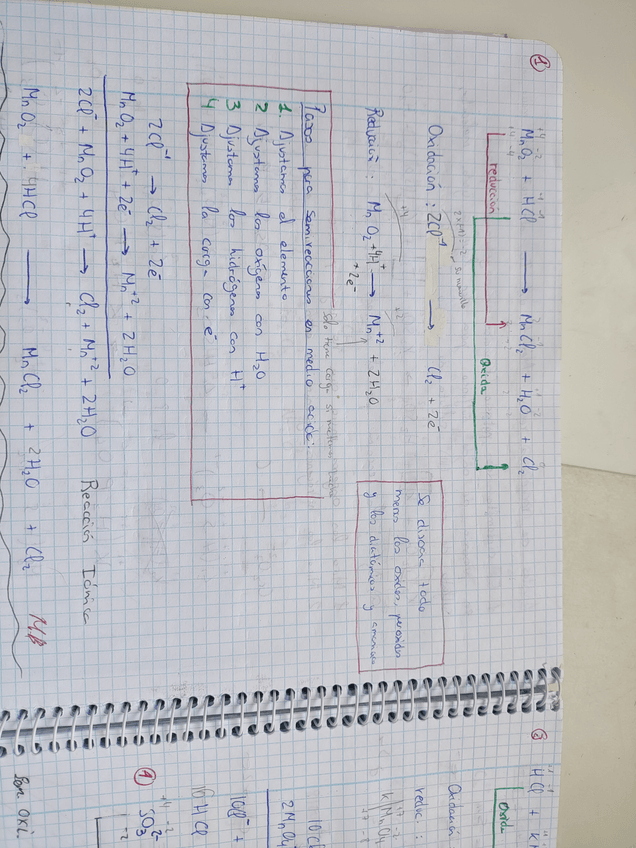 1
+4 -2 +1 -1
MnO₂ + HCl ⟶ MnCl₂ + H₂O + Cl₂
reducción
Oxida
Oxidación : 2Cl⁻¹ ⟶ Cl₂ + 2e⁻
Reducción : MnO₂ + 4H⁺ + 2e⁻ ⟶ Mn⁺² + 2H₂O
Se disocia todo
menos los óxidos, peróxidos
y los diatómicos y
Pasos para semireacciones en medio acido:
1. Ajustamos el elemento
2 Ajustamos los oxígenos con H₂O
3 Ajustamos los hidrógenos con H⁺
4 Ajustamos la carga con e⁻
2Cl⁻¹ → Cl₂ + 2e⁻
MnO₂ + 4H⁺ + 2e⁻ ⟶ Mn⁺² + 2H₂O
2Cl⁻ + MnO₂ + 4H⁺ ⟶ Cl₂ + Mn⁺² + 2H₂O Reacción Iónica
MnO₂ + 4HCl ⟶ MnCl₂ + 2H₂O + Cl₂
3
HCl +
Oxida
Oxidación
reduc :
10Cl⁻ +
10HCl
4
+4 -2
SO₃²⁻
-2